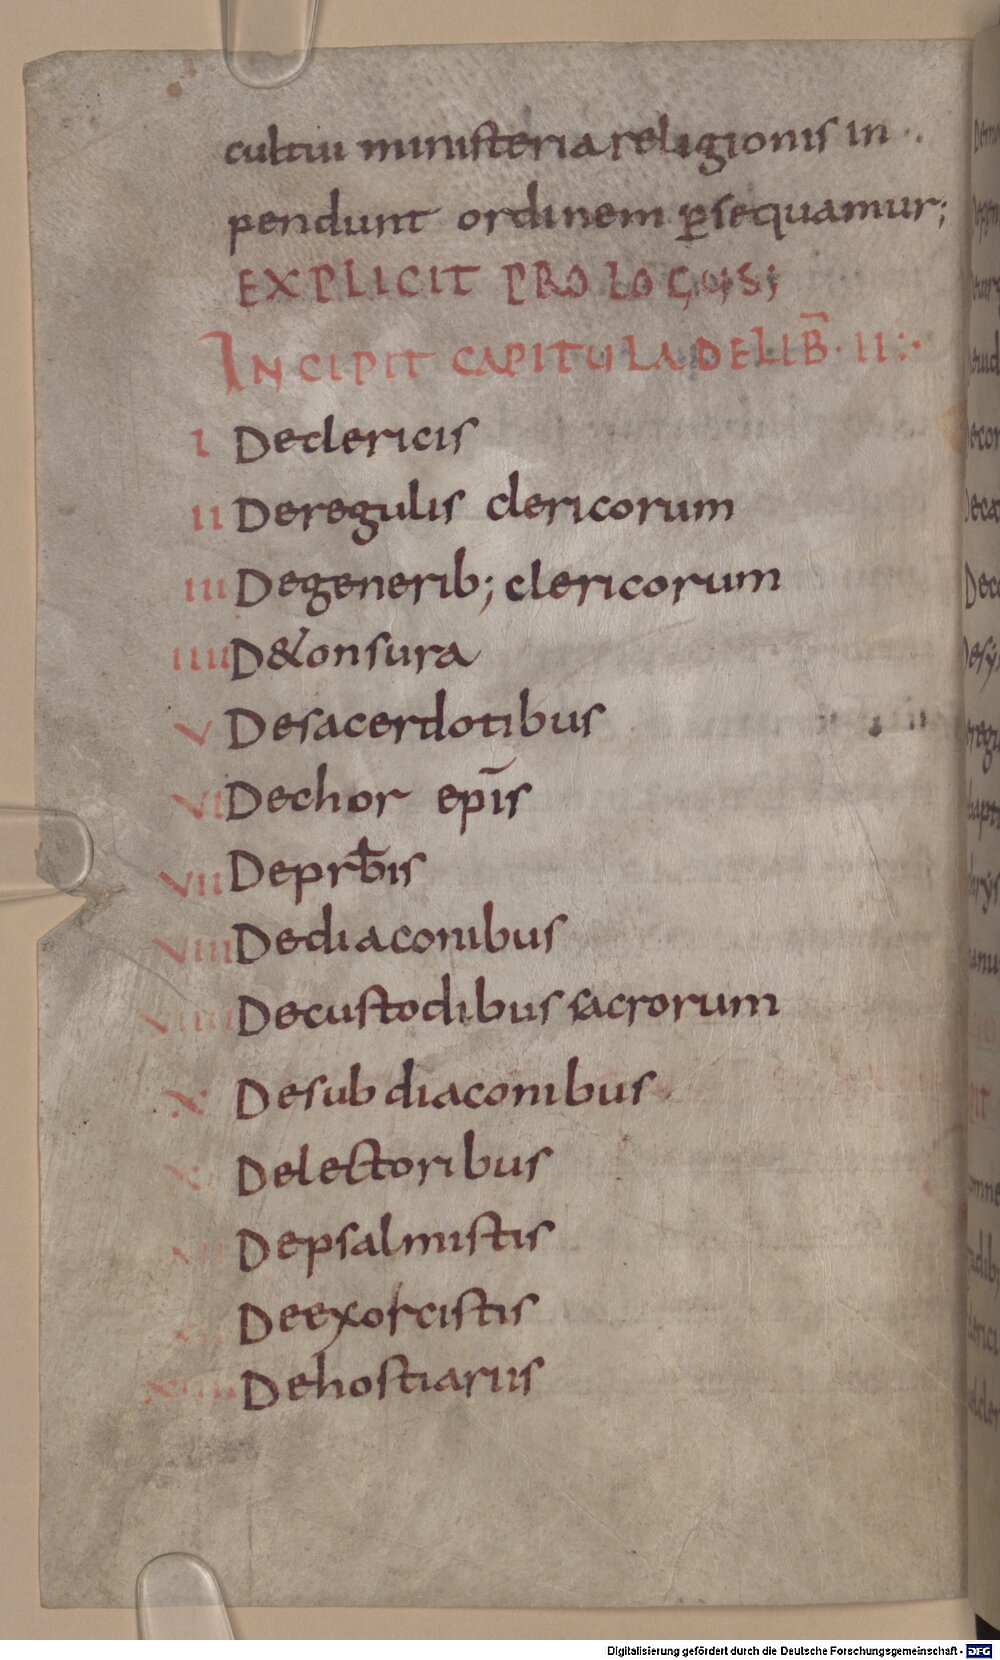 cultui ministeria religionis in
pendunt ordinem ꝑsequamur;
EXPLICIT PROLOGUS;
INCIPIT CAPITULA DE LIB̄· II:·
I Declericis
II Deregulis clericorum
III Degenerib; clericorum
IIII D&onsura
V Desacerdotibus
VI Dechor ep̄is
VII Deprƀis
VIII Dediaconibus
VIIII Decustodibus sacrorum
X Desub diaconibus
XI Delectoribus
XII Depsalmistis
Deexorcistis
XIIII Dehostiariis
Digitalisierung gefördert durch die Deutsche Forschungsgemeinschaft - DFG